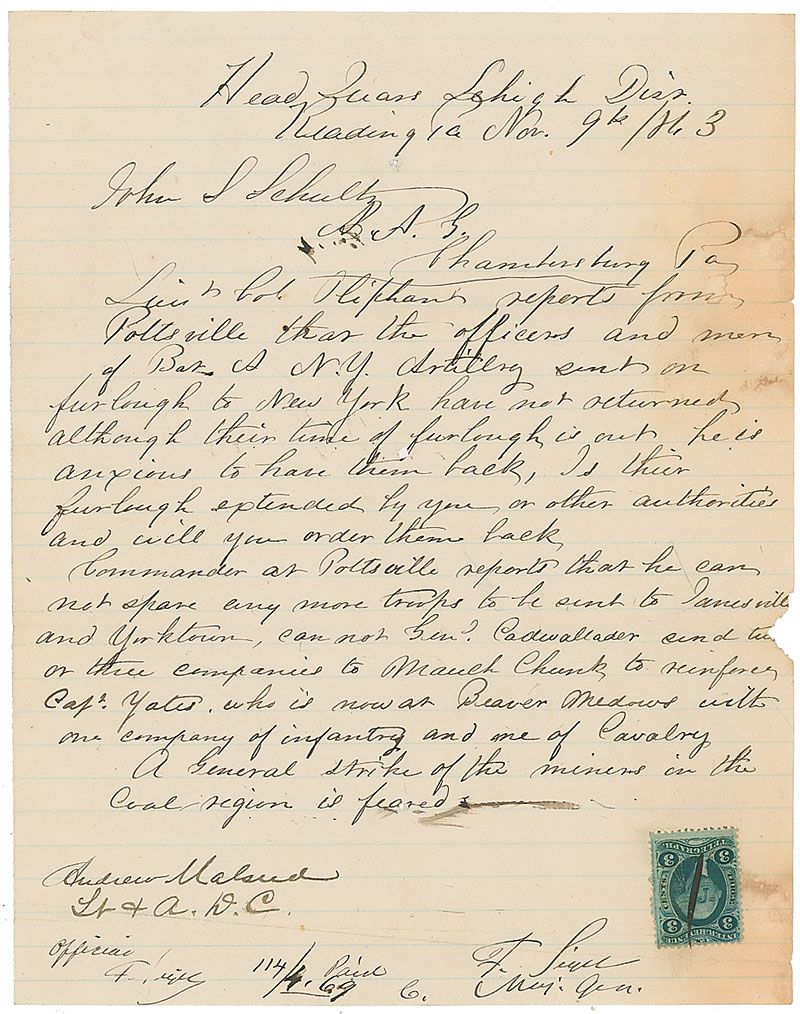 Head Quars Lehigh Distr.
Reading Pa Nov. 9th /863
John S Schultz
A. A. G.
Chambersburg Pa
Lieut Col Oliphant reports from
Pottsville that the officers and men
of Bat. A N.Y. Artillry sent on
furlough to New York have not returned
although their time of furlough is out he is
anxious to have them back, Is their
furlough extended by you or other authorities
and will you order them back
Commander at Pottsville reports that he can
not spare any more troops to be sent to Janesville
and Yorktown, can not Genl. Cadwallader send two
or three companies to Mauch Chunk to reinforce
Capt. Yates. who is now at Beaver Medows with
one company of infantry and one of Cavalry
A General strike of the miners in the
Coal region is feared
Andrew
Lt & A. D. C.
Official
F. Sigel
114/ Paid
C.
F. Sigel
Maj. Gen.
3 TELEGRAPH 3
CENTS. THREE
3 INTER. REVENUE 3